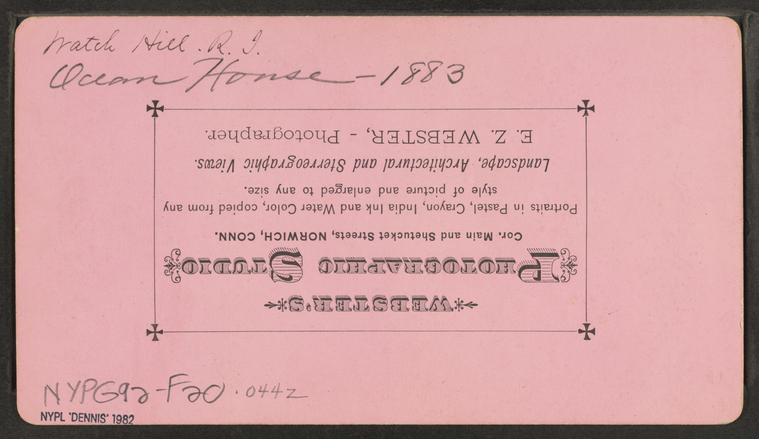 Watch Hill. R. I.
Ocean House - 1883
WEBSTER'S
PHOTOGRAPHIC STUDIO
Cor. Main and Shetucket Streets, NORWICH, CONN.
Portraits in Pastel, Crayon, India Ink and Water Color, copied from any
style of picture and enlarged to any size.
Landscape, Architectural and Stereographic Views.
E. Z. WEBSTER, - Photographer.
NYPG92-F20 .0442
NYPL 'DENNIS' 1982